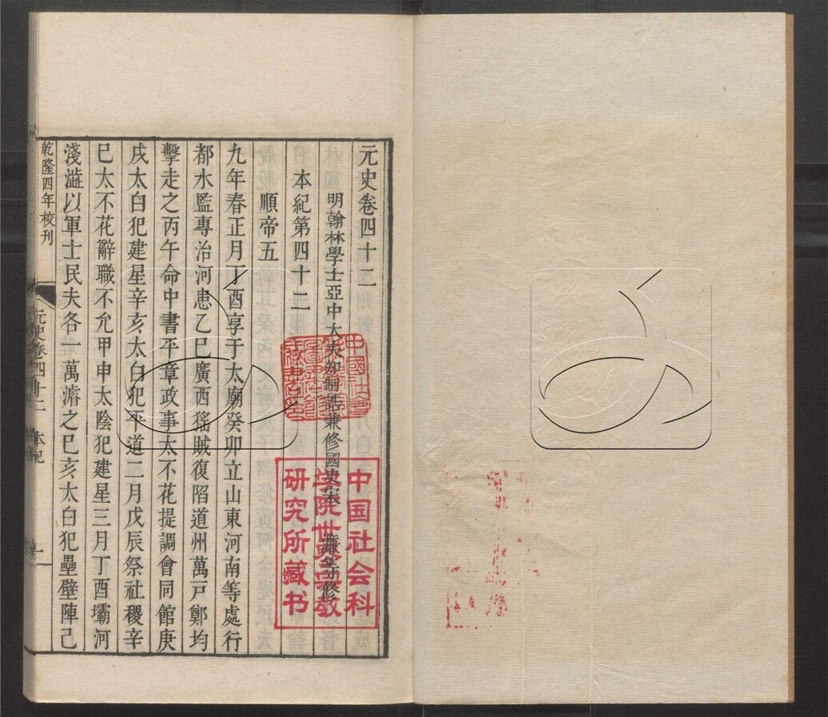 元史卷四十二
明翰林學士亞中大夫知制誥兼修國史宋濂等修
本紀第四十二
順帝五
九年春正月丁酉享于太廟癸卯立山東河南等處行
都水監專治河患乙巳廣西猺賊復陷道州萬戶鄭均
擊走之丙午命中書平章政事太不花提調會同館庚
戌太白犯建星辛亥太白犯平道二月戊辰祭社稷辛
巳太不花辭職不允甲申太陰犯建星三月丁酉壩河
淺澁以軍士民夫各一萬濬之己亥太白犯壘壁陣己
乾隆四年校刊
元史卷四十二 本紀
一
中国社会科
学院世界宗教
研究所藏书